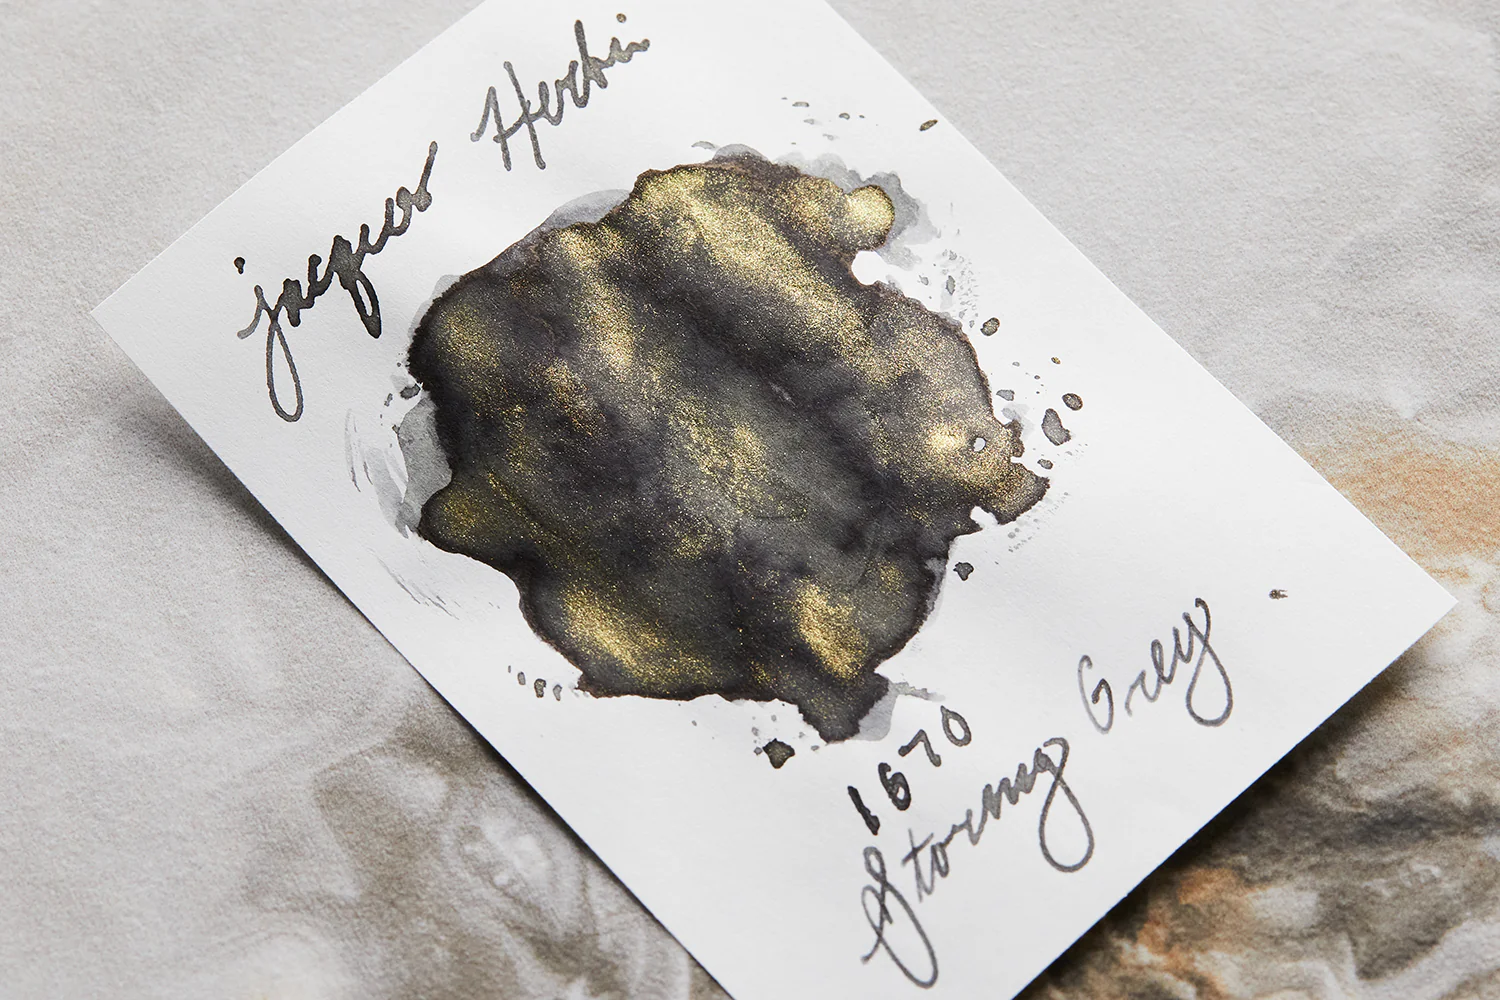 Jacques Herbin
1670
Stormy Grey